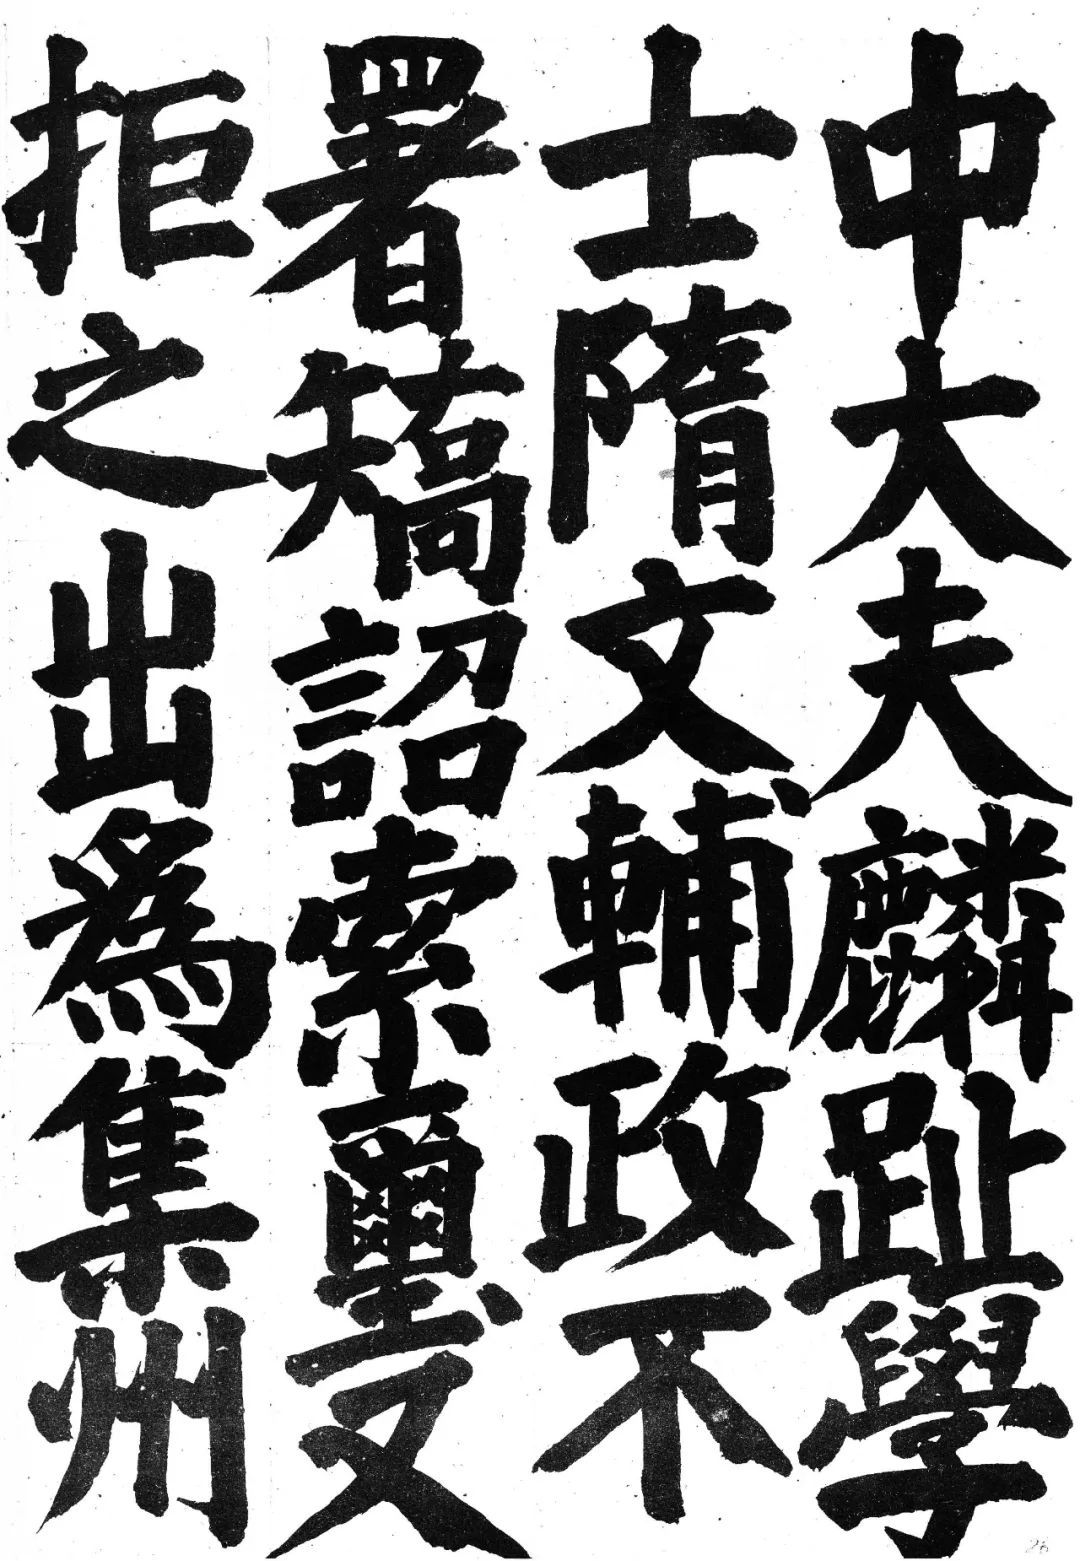 中大夫麟趾學
士隋文輔政不
署矯詔索璽又
拒之出爲集州